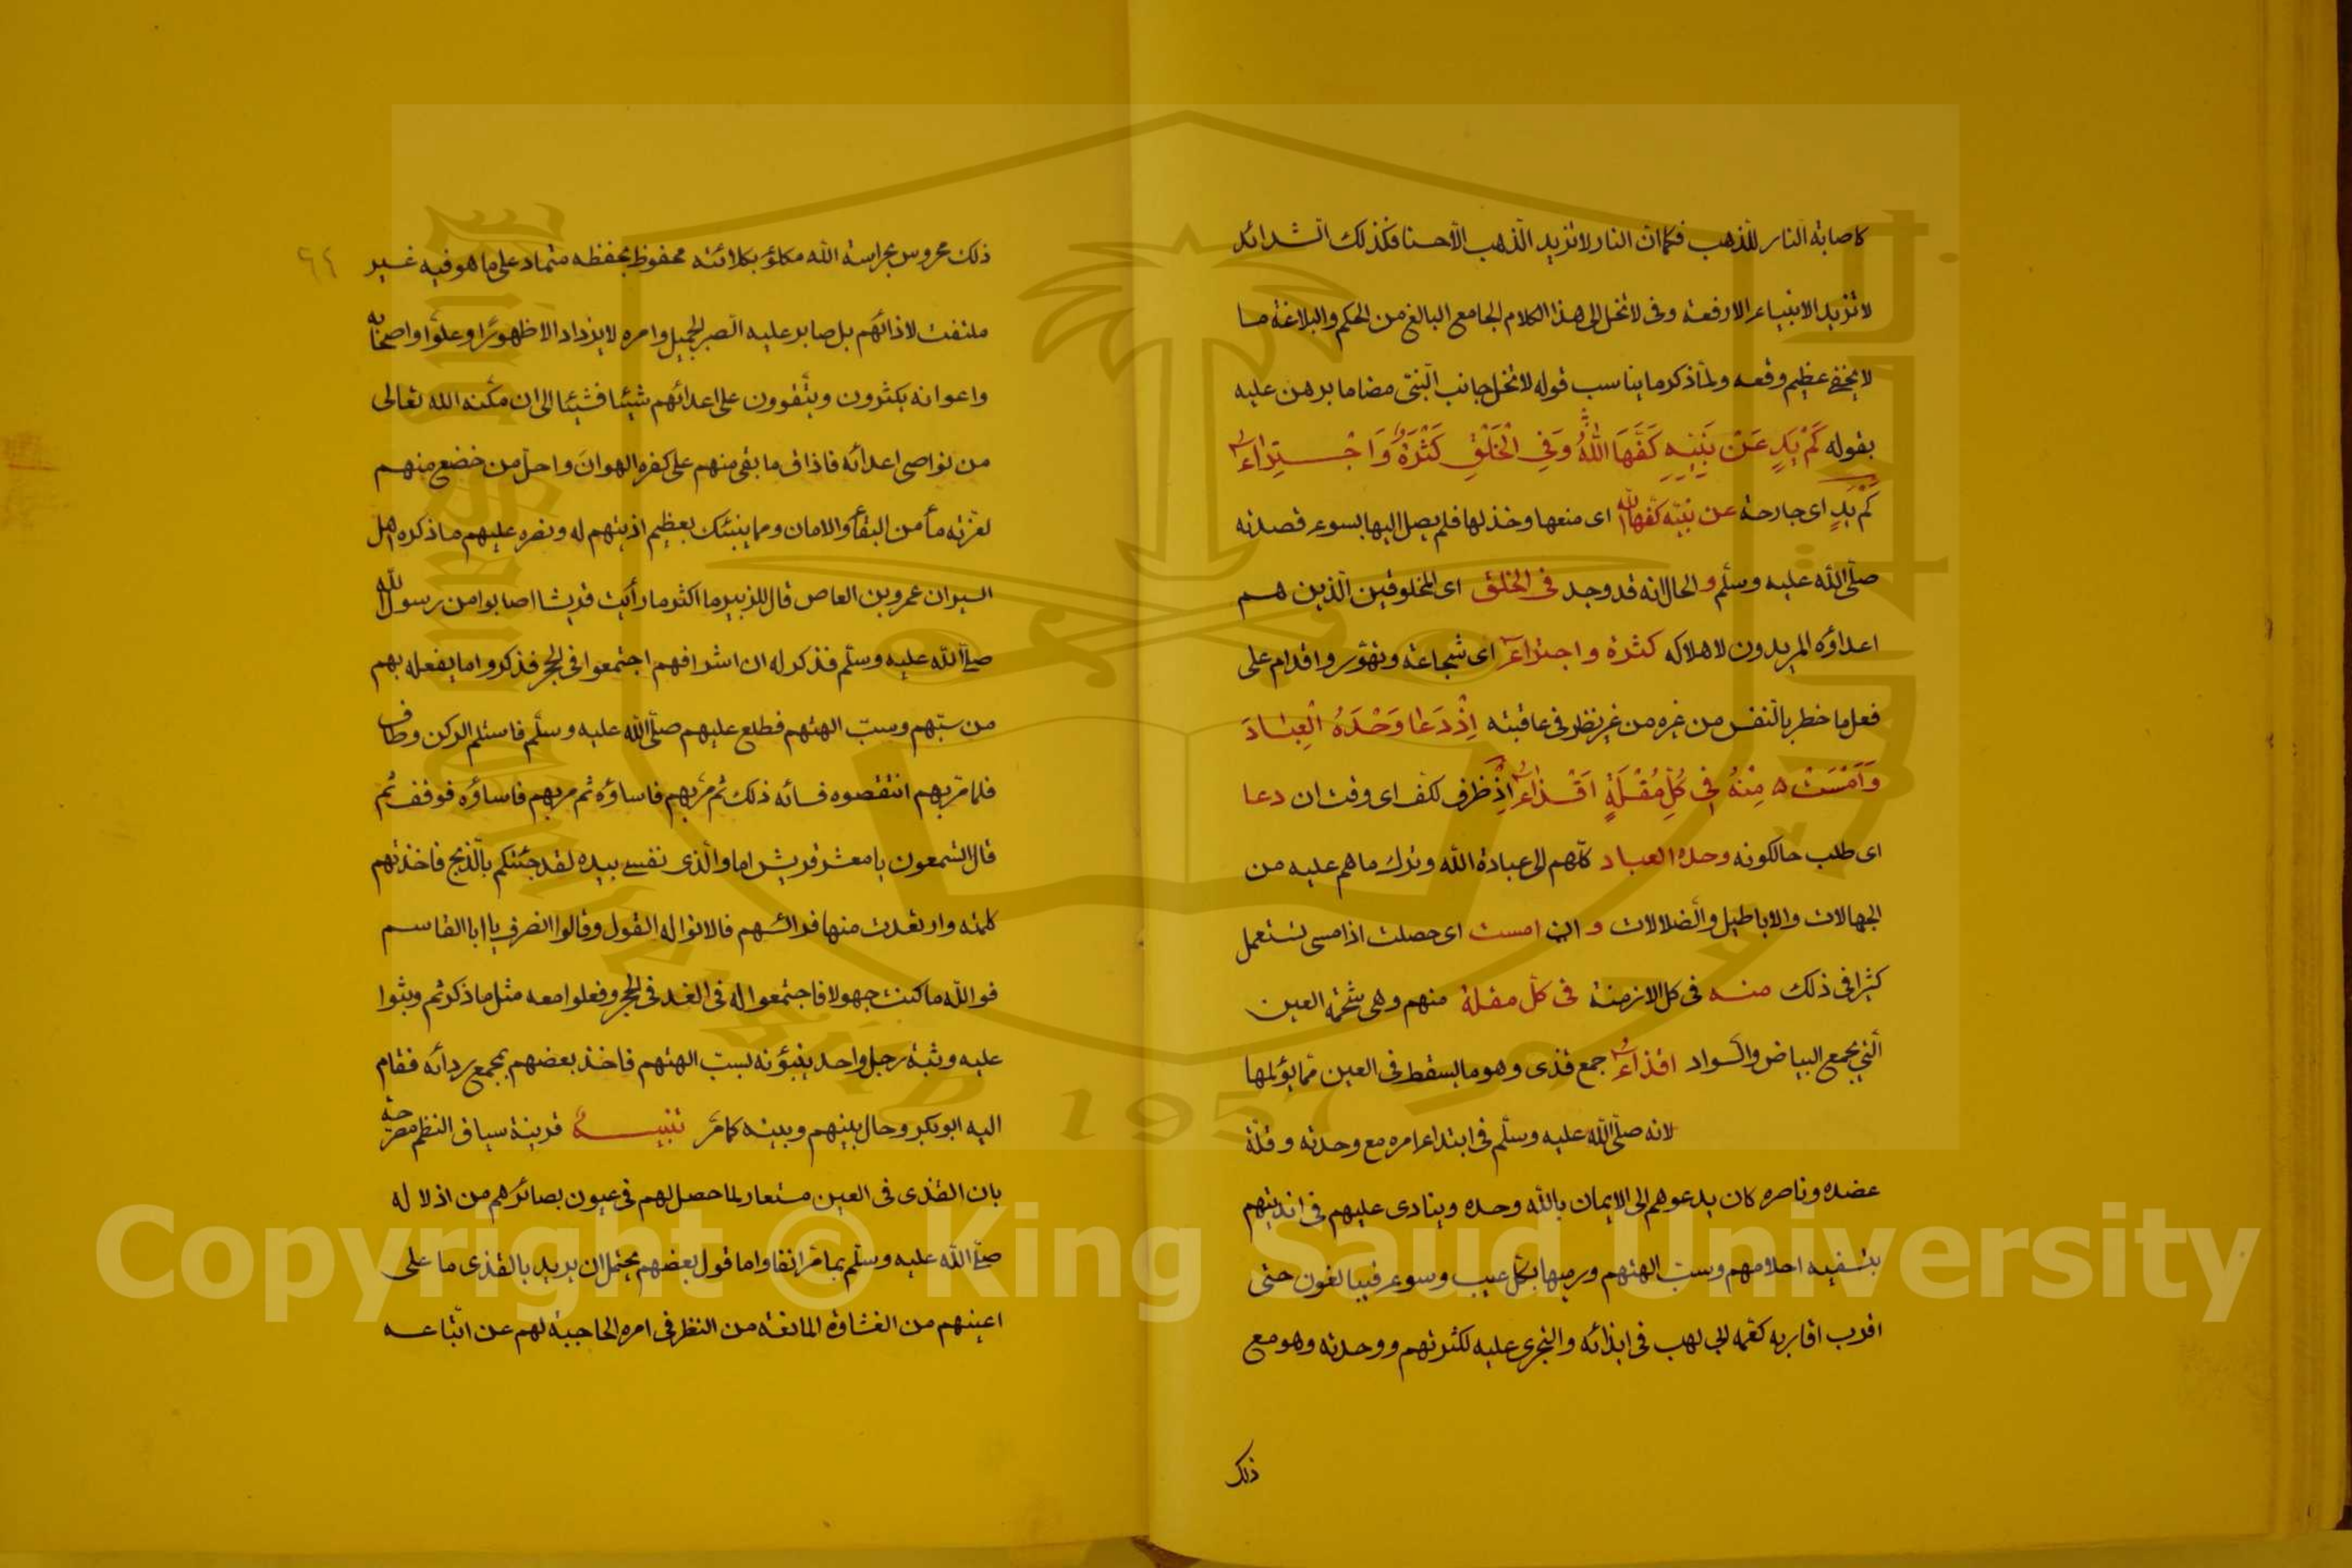 كاصابة النار للذهب فكما ان النار لا تزيد الذهب الا حسنا فكذلك الشدائد
لا تزيد الانبياء الا رفعة وفي لا تخل الى هذا الكلام الجامع البالغ من الحكم والبلاغة ما
لا يخفى عظيم وقعه ولما ذكر ما يناسب قوله لا تخل جانب النبي مضاما برهن عليه
بقوله كَمْ يَدٍ عَنْ نَبِيِّهِ كَفَّهَا اللهُ وَفِي الْخَلْقِ كَثْرَةٌ وَاجْتِرَاءُ
كم يدٍ اى جارحة عن نبيه كفها الله اى منعها وخذلها فلم يصل اليها بسوء قصدته
صلى الله عليه وسلم و الحال انه قد وجد فى الخلق اى المخلوقين الذين هم
اعداؤه المريدون لاهلاكه كثرة واجتراء اى شجاعة وتهور واقدام على
فعل ما خطر بالنفس من غيره من غير نظر فى عاقبته اِذْ دَعَا وَحْدَهُ الْعِبَادَ
وَاَمْسَتْ ه مِنْهُ فِى كُلِّ مُقْلَةٍ اَقْذَاءُ اذ ظرف لكف اى وقت ان دعا
اى طلب حال كونه وحده العباد كلهم الى عبادة الله وترك ما هم عليه من
الجهالات والاباطيل والضلالات و امست اى حصلت اذ امسى تستعمل
كثيرا فى ذلك منه فى كل الازمنة فى كل مقلة منهم وهى شحمة العين
التي تجمع البياض والسواد اقذاء جمع قذى وهو ما يسقط فى العين مما يؤلمها
لانه صلى الله عليه وسلم فى ابتداء امره مع وحدته وقلة
عضده وناصره كان يدعوهم الى الايمان بالله وحده وينادى عليهم فى انديتهم
بتسفيه احلامهم وسب الهتهم ورميها بكل عيب وسوء فيبالغون حتى
اقرب اقاربه كعمه ابى لهب فى ايذائه والتجرى عليه لكثرتهم ووحدته وهو مع
ذلك
٦٤
ذلك محروس بحراسة الله مكلؤ بكلائته محفوظ بحفظه متماد على ما هو فيه غير
ملتفت لاذائهم بل صابر عليه الصبر الجميل وامره لا يزداد الا ظهورًا وعلوًا واصحابه
واعوانه يكثرون ويتقوون على اعدائهم شيئا فشيئا الى ان مكنه الله تعالى
من نواصى اعدائه فاذاق ما بقى منهم على كفره الهوان واحل من خضع منهم
لعزته مأمن البقأ والامان ومما ينبئك بعظيم اذيتهم له ونصره عليهم ما ذكره اهل
السير ان عمرو بن العاص قال للزبير ما اكثر ما رأيت قريشا اصابوا من رسول الله
صلى الله عليه وسلم فذكر له ان اشرافهم اجتمعوا فى الحجر فذكروا ما يفعله بهم
من سبهم وسب الهتهم فطلع عليهم صلى الله عليه وسلم فاستلم الركن وطاف
فلما مر بهم انتقصوه فسائه ذلك ثم مر بهم فاساؤه ثم مر بهم فاساؤه فوقف ثم
قال اتسمعون يا معشر قريش اما والذى نفسى بيده لقد جئتكم بالذبح فاخذتهم
كلمته وارتعدت منها فرائسهم فالانوا له القول وقالوا انصرف يا ابا القاسم
فوالله ما كنت جهولا فاجتمعوا له فى الغد فى الحجر وفعلوا معه مثل ما ذكر ثم وثبوا
عليه وثبة رجل واحد بسب الهتهم فاخذ بعضهم بمجمع ردائه فقام
اليه ابو بكر وحال بينهم وبينه كما مر تنبيه قرينة سياق النظم مصرحة
بان القذى فى العين مستعار لما حصل لهم فى عيون بصائرهم من اذلا له
صلى الله عليه وسلم بما مر انفا واما قول بعضهم يحتمل ان يريد بالقذى ما على
اعينهم من الغشاوة المانعة من النظر فى امره الحاجبة لهم عن اتباعه
Copyright © King Saud University
1957